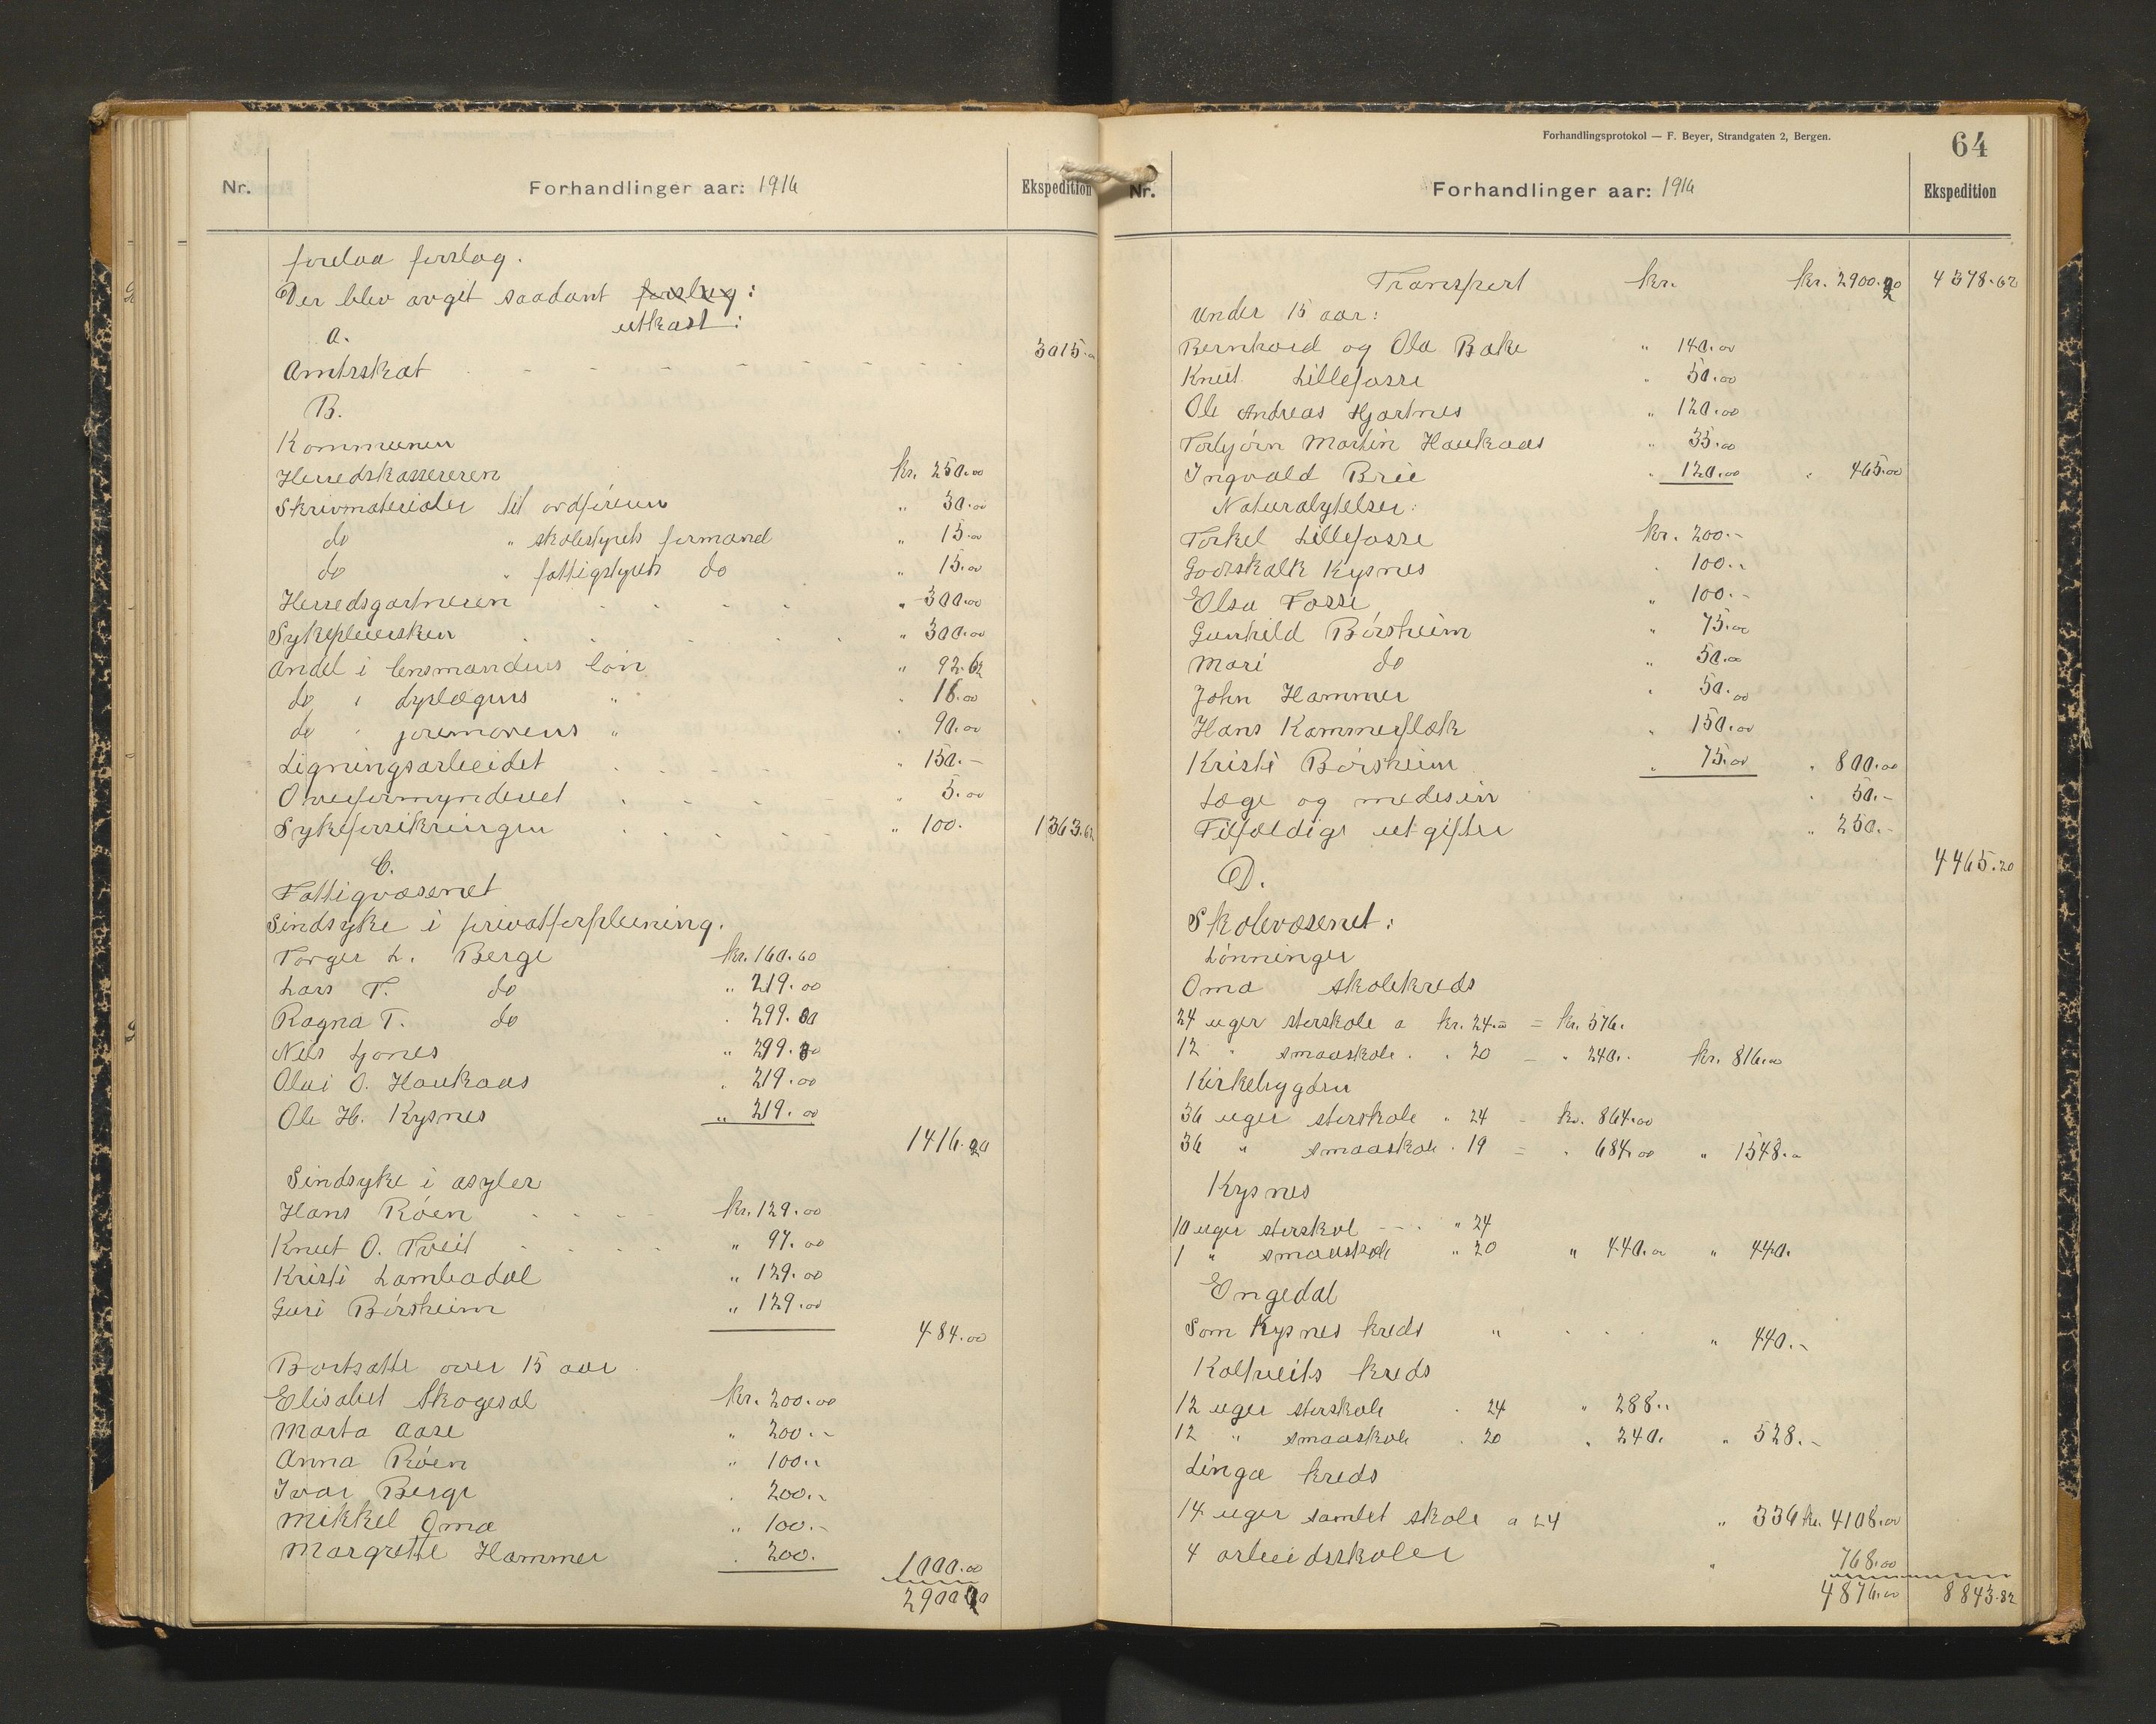 Nr.
Forhandlinger aar: 1916
Ekspedition
forelaa forslag.
Der blev avget saadant forslag:
utkast:
A.
Amtsskat 3015.00
B.
Kommunen
Herredskassereren kr. 250.00
Skrivmaterialer til ordføreren " 30.00
do " skolestyrets formand " 15.00
do " fattigstyrets do " 15.00
Herredsgartneren " 300.00
Sykepleiersken " 300.00
Andel i lensmandens løn " 92.62
do i dyrlægens " " 16.00
do " jormorens " " 90.00
Ligningsarbeidet " 150.-
Overformynderiet " 5.00
Sykeforsikringen " 100. 1363.62
C.
Fattigvæsenet
Sindsyke i privatforpleining.
Torger L. Berge kr. 160.60
Lars T. do " 219.00
Ragna T. do " 299.30
Nils Gjønes " 299.30
Olai O. Haukaas " 219.00
Ole H. Kysnes " 219.00
1416.20
Sindsyke i asyler
Hans Røen kr. 129.00
Knut O. Tveit " 97.00
Kristi Lambadal " 129.00
Guri Børsheim " 129.00
484.00
Bortsatte over 15 aar
Elisabet Skogesal kr. 200.00
Marta Aase " 200.-
Anna Røen " 100.-
Ivar Berge " 200.-
Mikkel Oma " 100.-
Margrethe Hammer " 200. 1000.00
2900.20
Forhandlingsprotokol — F. Beyer, Strandgaten 2, Bergen.
64
Nr.
Forhandlinger aar: 1916
Ekspedition
Transport kr. kr. 2900.20 4378.62
Under 15 aar:
Bernhard og Ola Bake " 140.00
Knut Lillefosse " 50.00
Ole Andreas Hjartnes " 120.00
Torbjørn Martin Haukaas " 35.00
Ingvald Brie " 120.00 " 465.00
Naturalytelser:
Torkel Lillefosse kr. 200.-
Godskalk Kysnes " 100.-
Elsa Fosse " 100.-
Gunhild Børsheim " 75.00
Mari do " 50.00
John Hammer " 50.00
Hans Kammerflæk " 150.00
Kristi Børsheim " 75.00 " 800.00
Læge og medesin " 50.-
Tilfældige utgifter " 250.-
4465.20
D.
Skolevæsenet:
Lønninger
Oma skolekreds
24 uger storskole a kr. 24.00 = kr. 576.
12 " smaaskole " 20 = " 240. kr. 816.00
Kirkebygden
36 uger storskole " 24 = kr. 864.00
36 " smaaskole " 19 = " 684.00 " 1548.00
Kysnes
10 uger storskol " 24
1 " smaaskole " 20 " 440.00 " 440.
Engedal
Som Kysnes kreds " " 440.-
Koltveits kreds
12 uger storskole " 24 " 288.-
12 " smaaskole " 20 " 240. " 528.-
Linga kreds
14 uger samlet skole a 24 " 336 kr. 4108.00
4 arbeidsskoler " 768.00
4876.00 8843.82